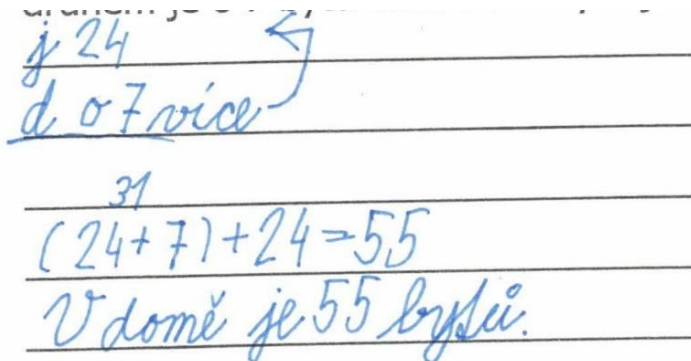 j 24
d o 7 více
31
(24+7)+24=55
V domě je 55 bytů.